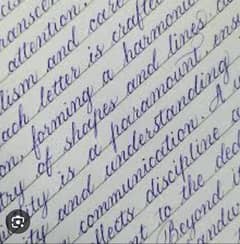 attention.
and care
lism and
each letter is crafted
on, forming a harmonic
try of shapes and lines, a
ity is a paramount ens
ity and understanding
communication. A
flects discipline a
to the ded
Beyond i